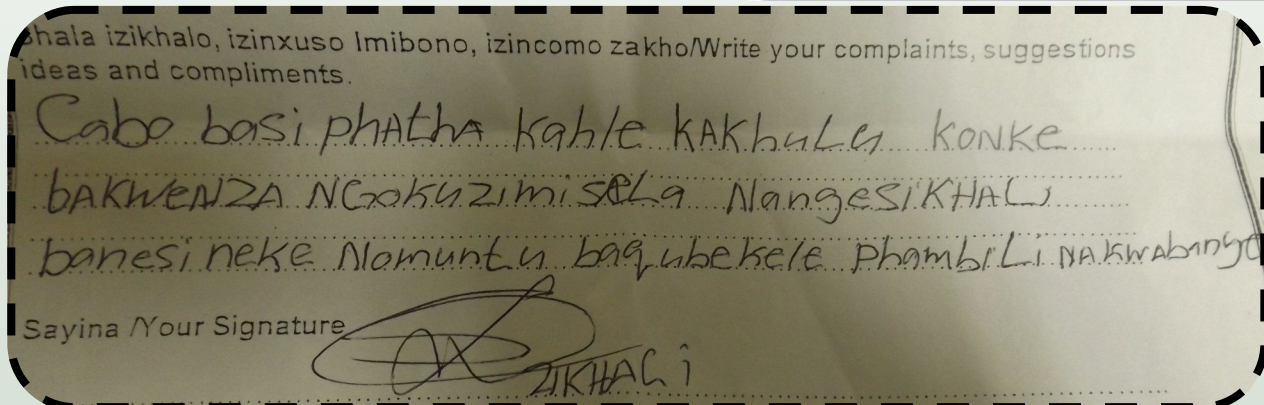 Bhala izikhalo, izinxuso Imibono, izincomo zakho/Write your complaints, suggestions
ideas and compliments.
Cabo basi phAthA kahle kAKhuLu KONKe
bAKWeNZA NGokuzimiseLa NangesiKHALi
banesineke Nomuntu baqubekele phambiLi NAKWAbanye
Sayina /Your Signature
ZIKHALi